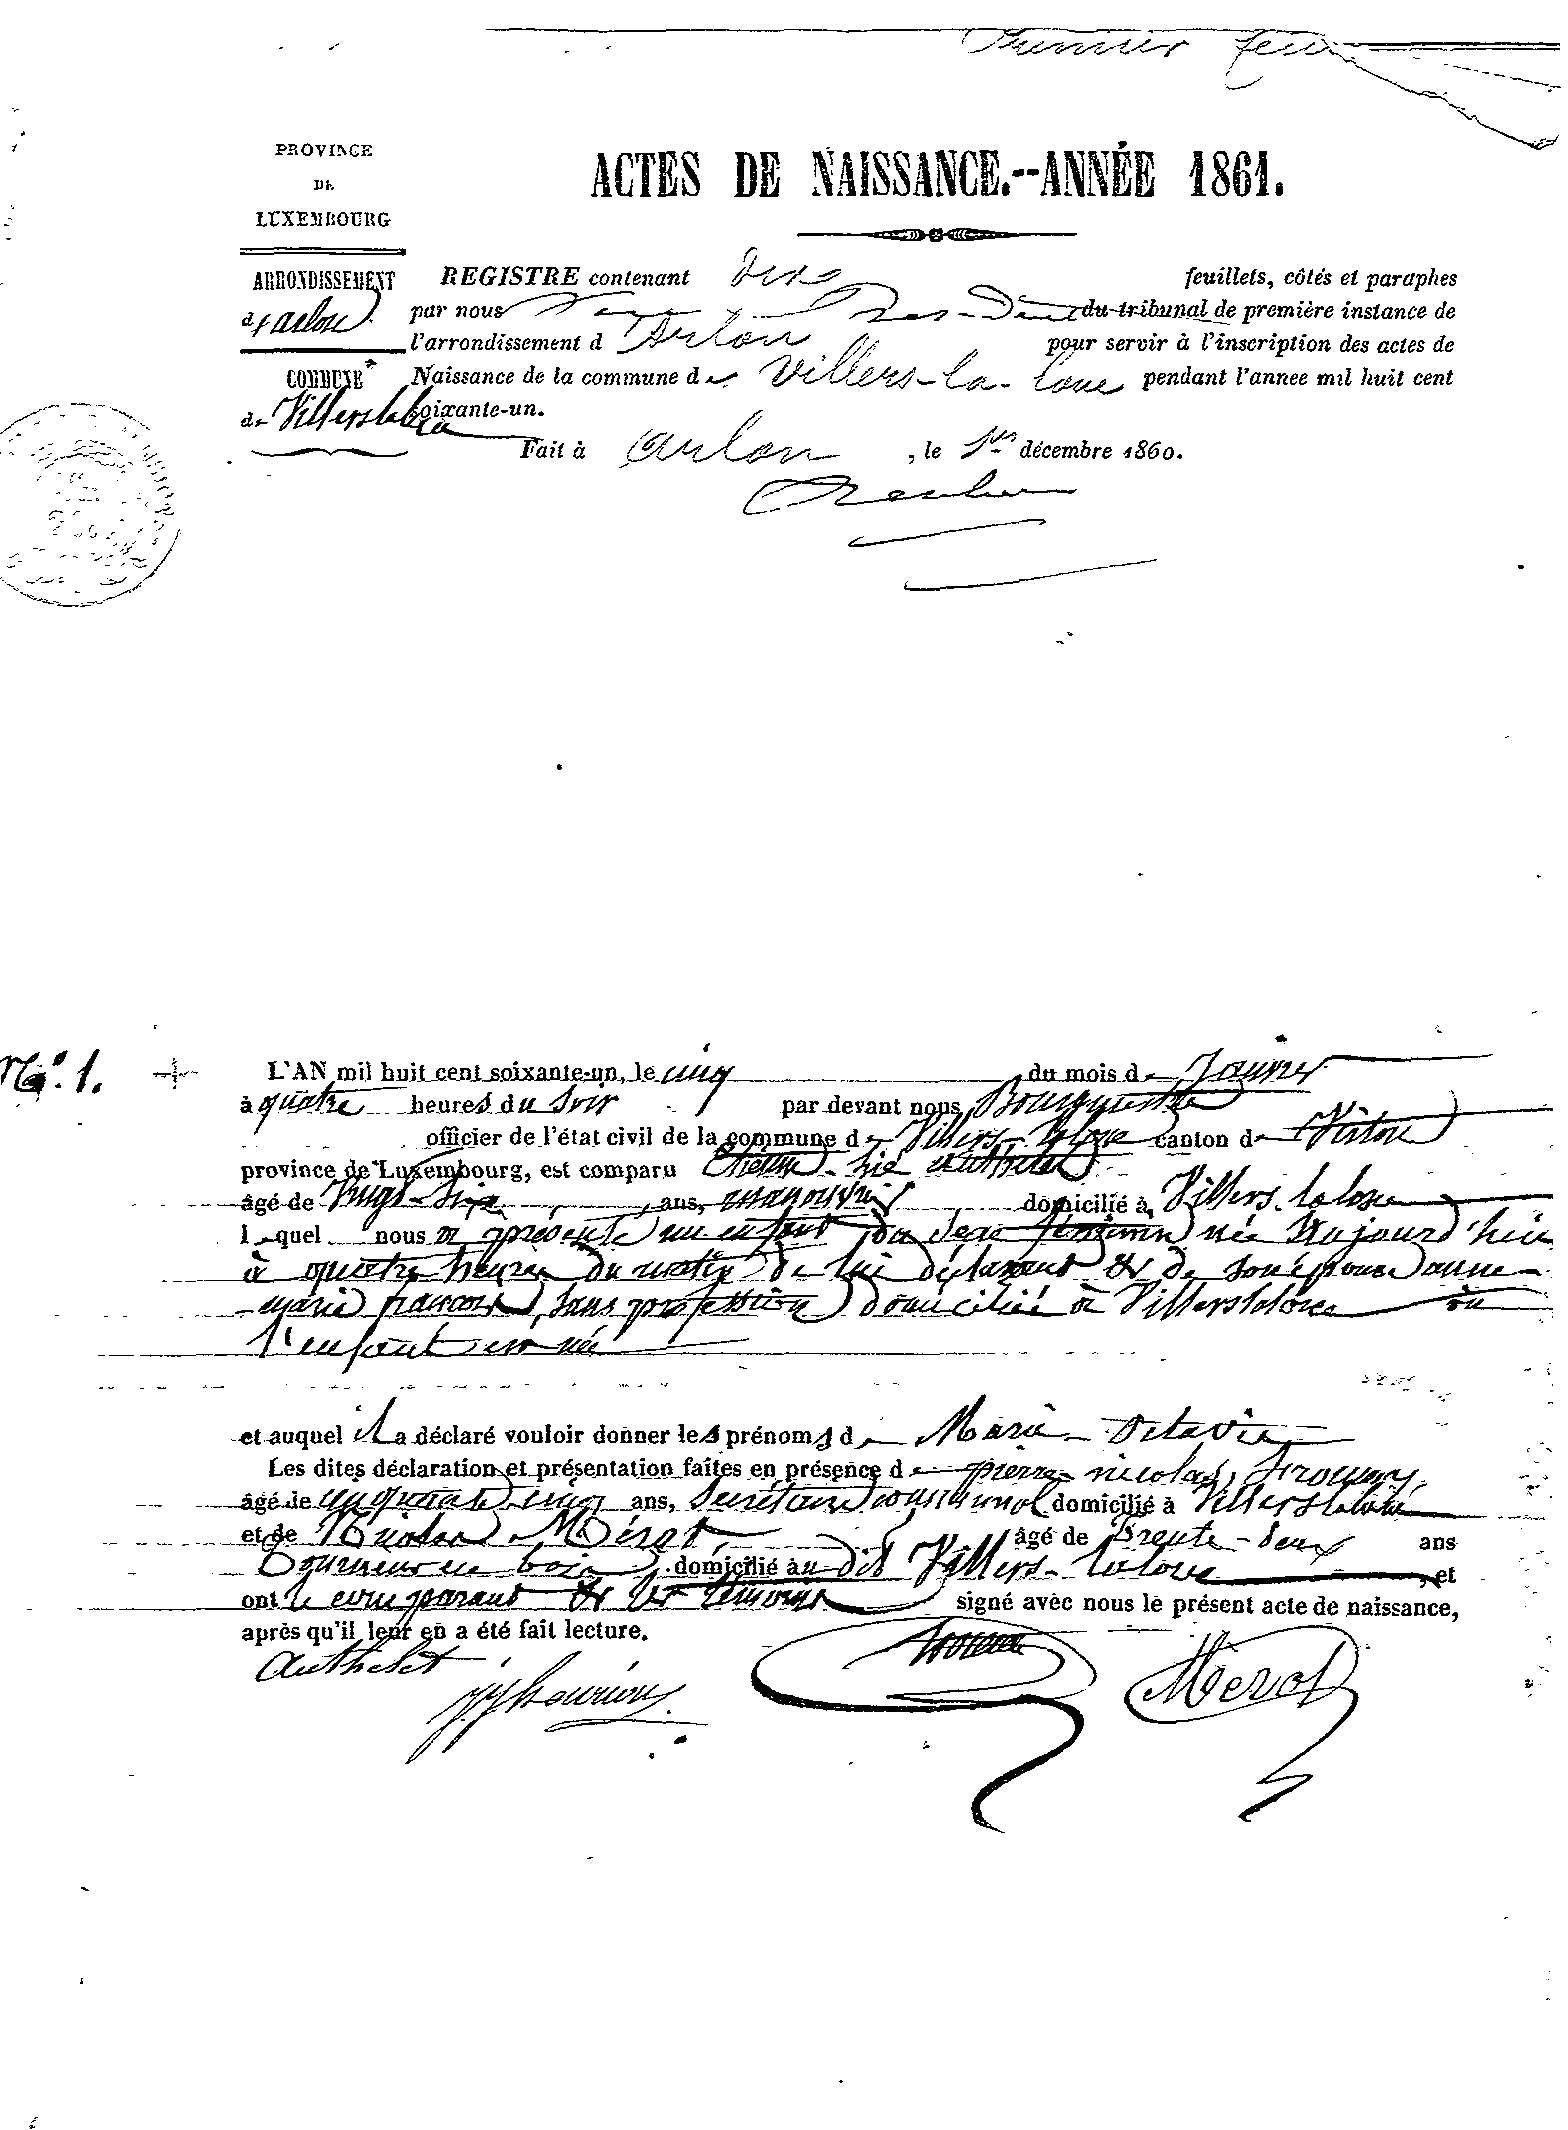 Premier
PROVINCE
DE
LUXEMBOURG
ACTES DE NAISSANCE.--ANNÉE 1861.
ARRONDISSEMENT
d'arlon
COMMUNE
de Villerslaloue
REGISTRE contenant dix feuillets, côtés et paraphes
par nous Président du tribunal de première instance de
l'arrondissement d'Arlon pour servir à l'inscription des actes de
Naissance de la commune de Villers-la-loue pendant l'annee mil huit cent
soixante-un.
Fait à arlon, le 1er décembre 1860.
No. 1.
L'AN mil huit cent soixante-un, le cinq du mois de Janvier
à quatre heures du soir par devant nous Bourgmestre
officier de l'état civil de la commune de Villers-laloue canton de Virton
province de Luxembourg, est comparu authelet
âgé de vingt-six ans, manouvrier domicilié à Villers-laloue
lequel nous a présenté un enfant du sexe féminin née aujourd'hui
à quatre heures du matin de lui déclarant & de son épouse anne
-marie francois, sans profession domiciliée à Villerslaloue où
l'enfant est née
et auquel il a déclaré vouloir donner les prénoms de Marie-Octavie
Les dites déclaration et présentation faites en présence de pierre nicolas
âgé de cinquante cinq ans, secrétaire communal domicilié à Villerslaloue
et de Nicolas Mérot âgé de trente-deux ans
Tourneur en bois domicilié au dit Villers-laloue, et
ont le comparant & les témoins signé avec nous le présent acte de naissance,
après qu'il leur en a été fait lecture.
Authelet
Mérot